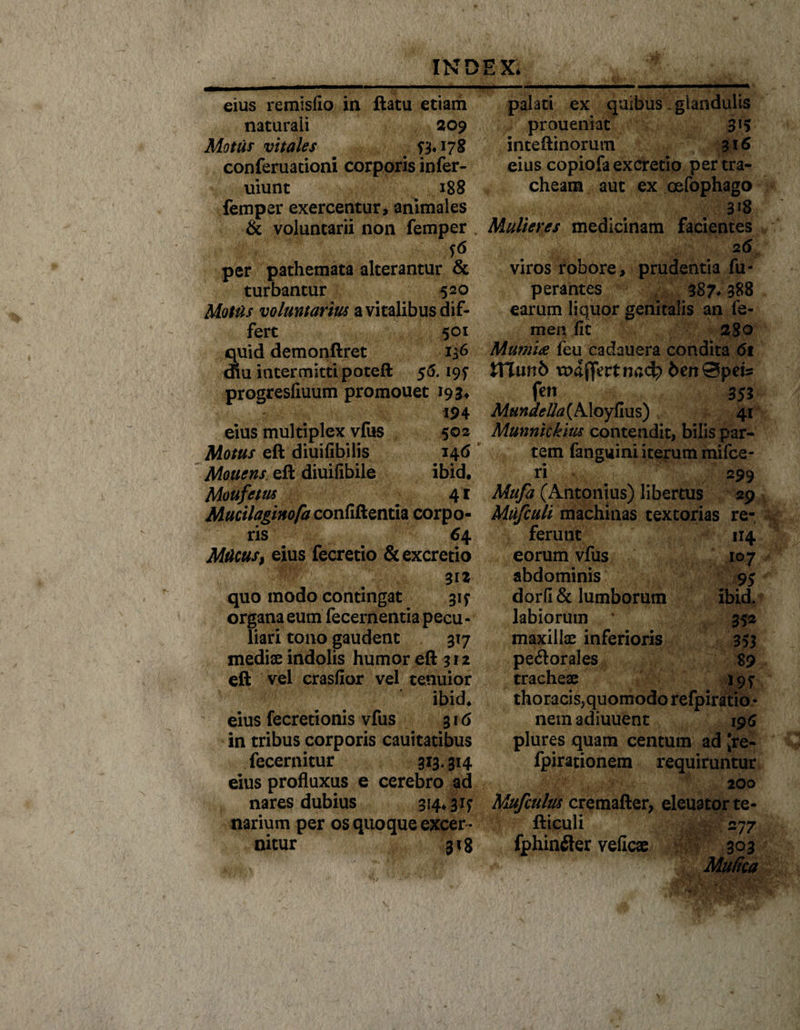 INDEX.
eius remisſio in ſtatu etiam
naturali 209
Motûs vitales 53. 178
conſeruationi corporis inſer-
uiunt 188
ſemper exercentur, animales
& voluntarii non ſemper
56
per pathemata alterantur &
turbantur 520
Motûs voluntarius a vitalibus dif-
fert 501
quid demonſtret 136
diu intermitti poteſt 56. 195
progresſiuum promouet 193.
194
eius multiplex vſus 502
Motus eſt diuiſibilis 146
Mouens eſt diuiſibile ibid.
Moufetus 41
Mucilaginoſa conſiſtentia corpo-
ris 64
Mucus, eius ſecretio & excretio
312
quo modo contingat 315
organa eum ſecernentia pecu-
liari tono gaudent 317
mediæ indolis humor eſt 312
eſt vel crasſior vel tenuior
ibid.
eius ſecretionis vſus 316
in tribus corporis cauitatibus
ſecernitur 313. 314
eius profluxus e cerebro ad
nares dubius 314. 315
narium per os quoque excer-
nitur 318
palati ex quibus glandulis
proueniat 315
inteſtinorum 316
eius copioſa excretio per tra-
cheam aut ex œſophago
318
Mulieres medicinam facientes
26
viros robore, prudentia ſu-
perantes 387. 388
earum liquor genitalis an ſe-
men ſit 280
Mumiæ ſeu cadauera condita 61
Mund wäſſert nach den Spei-
ſen 353
Mundella (Aloyſius) 41
Munnickius contendit, bilis par-
tem ſanguini iterum miſce-
ri 299
Muſa (Antonius) libertus 29
Muſculi machinas textorias re-
ferunt 114
eorum vſus 107
abdominis 95
dorſi & lumborum ibid.
labiorum 352
maxillæ inferioris 353
pectorales 89
tracheæ 195
thoracis, quomodo reſpiratio-
nem adiuuent 196
plures quam centum ad re-
ſpirationem requiruntur
200
Muſculus cremaſter, eleuator te-
ſticuli 277
ſphincter veſicæ 303
Muſica